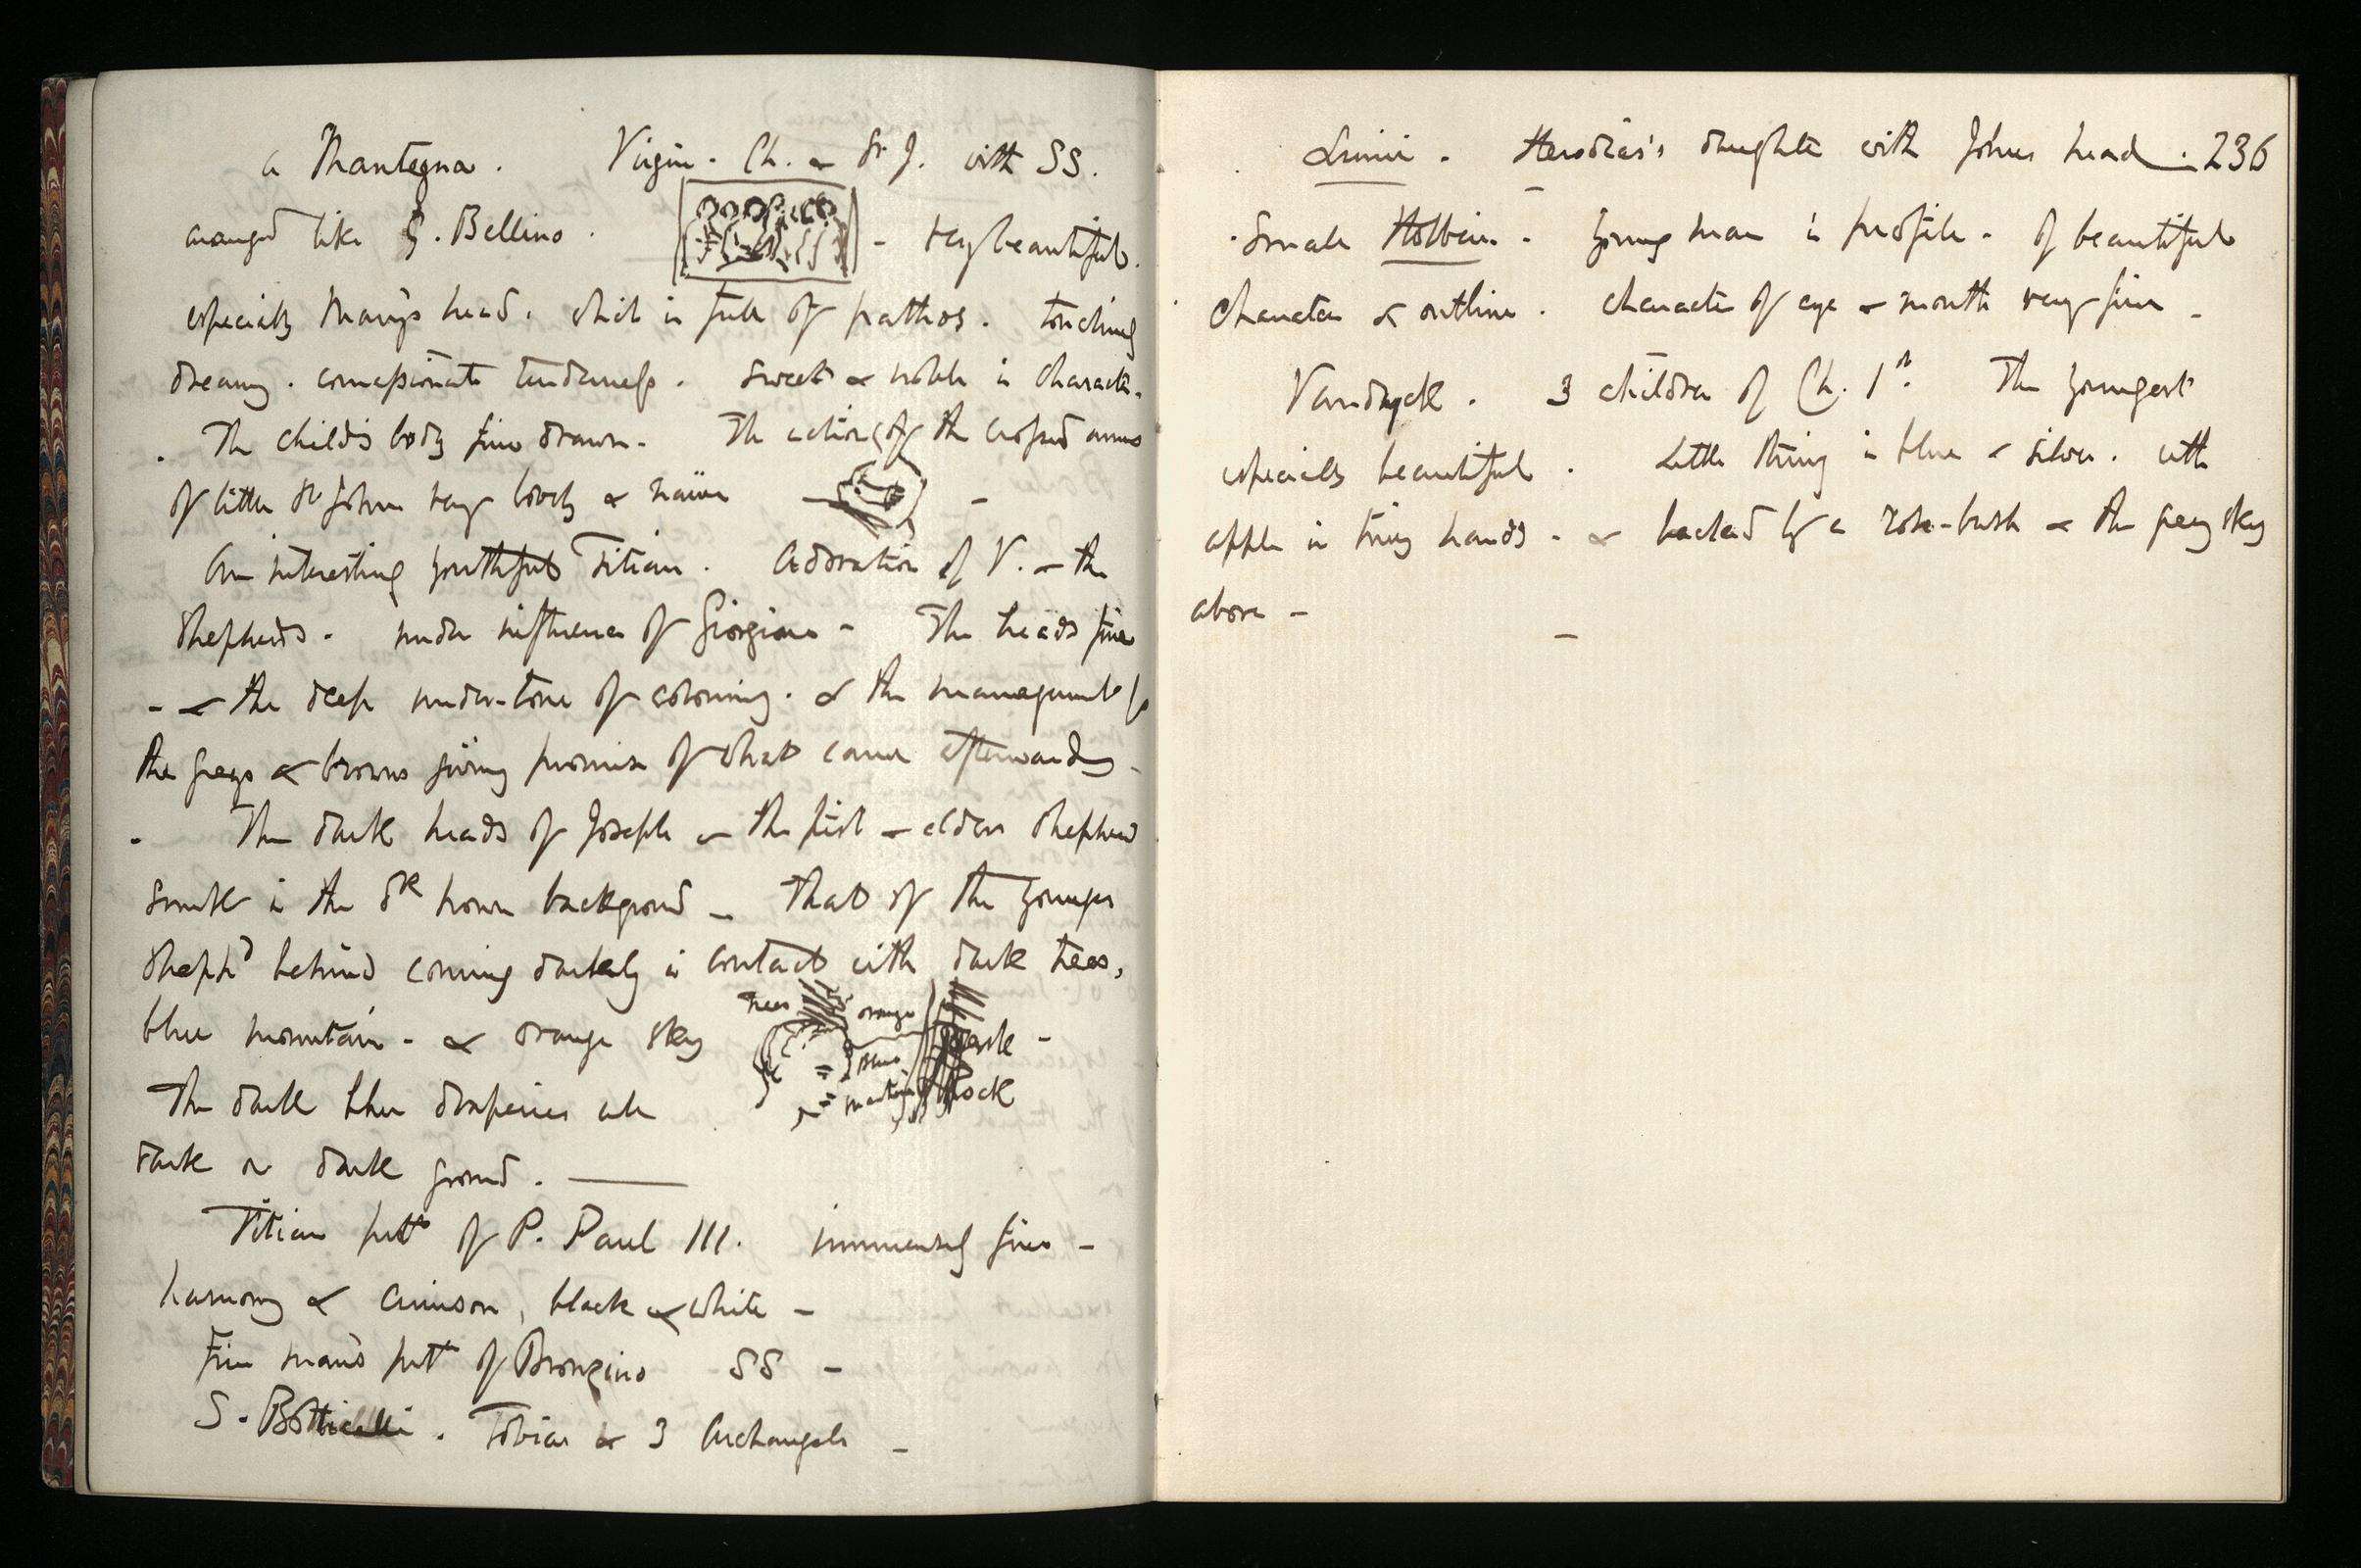 a Mantegna. Virgin. Ch. & St J. with SS.
arranged like G. Bellino. - very beautiful.
especially Mary's head. which is full of pathos. touching
dreamy. compassionate tenderness. sweet & noble in character.
. The child's body fine drawn. The action of the crossed arms
of little St John very lovely & naive -
An interesting youthful Titian. Adoration of V. & the
Shepherds. under influence of Giorgione - The heads fine
- & the deep under-tone of colouring. & the management of
the greys & browns giving promise of what came afterwards -
. The dark heads of Joseph & the first & elder shepherd
sunk in the dk brown background - That of the younger
Shephd behind coming darkly in contact with dark trees,
blue mountain - & orange sky
trees orange
blue mountain
Dark -
Rock
The dark blue draperies
dark on dark ground.
Titian prtt of P. Paul III. immensely fine -
harmony & crimson, black & white -
Fine man's prtt of Bronzino SS -
S. Botticelli. Tobias & 3 Archangels -
Luini. Herodias's daughter with Johns head. 236
. Small Holbein - Young man in profile - of beautiful
character & outline. character of eye & mouth very fine -
Vandyck. 3 children of Ch. 1st. The youngest
especially beautiful. Little thing in blue & silver. with
apple in tiny hands - & backed by a rose-bush & the grey sky
above -